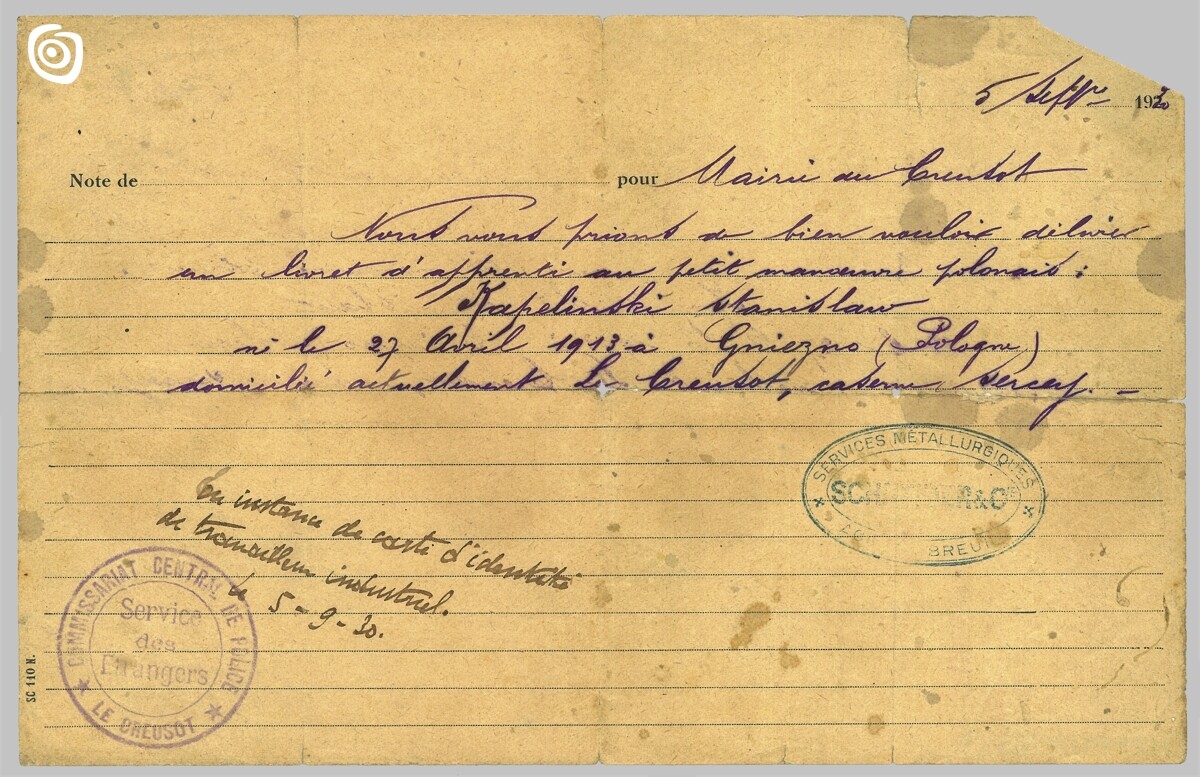 5 Septbre 1930
Note de pour Mairie du Creusot
Nous vous prions de bien vouloir délivrer
un livret d'apprenti au petit manœuvre polonais :
Kapelinski Stanislaw
né le 27 Avril 1913 à Gniezno (Pologne)
domicilié actuellement Le Creusot, caserne Sercey. —
SERVICES MÉTALLURGIQUES
SCHNEIDER & Cie
BREUIL
En instance de carte d'identité
de travailleur industriel.
Le 5-9-30.
COMMISSARIAT CENTRAL DE POLICE
Service
des
Etrangers
LE CREUSOT
SC 110 N.